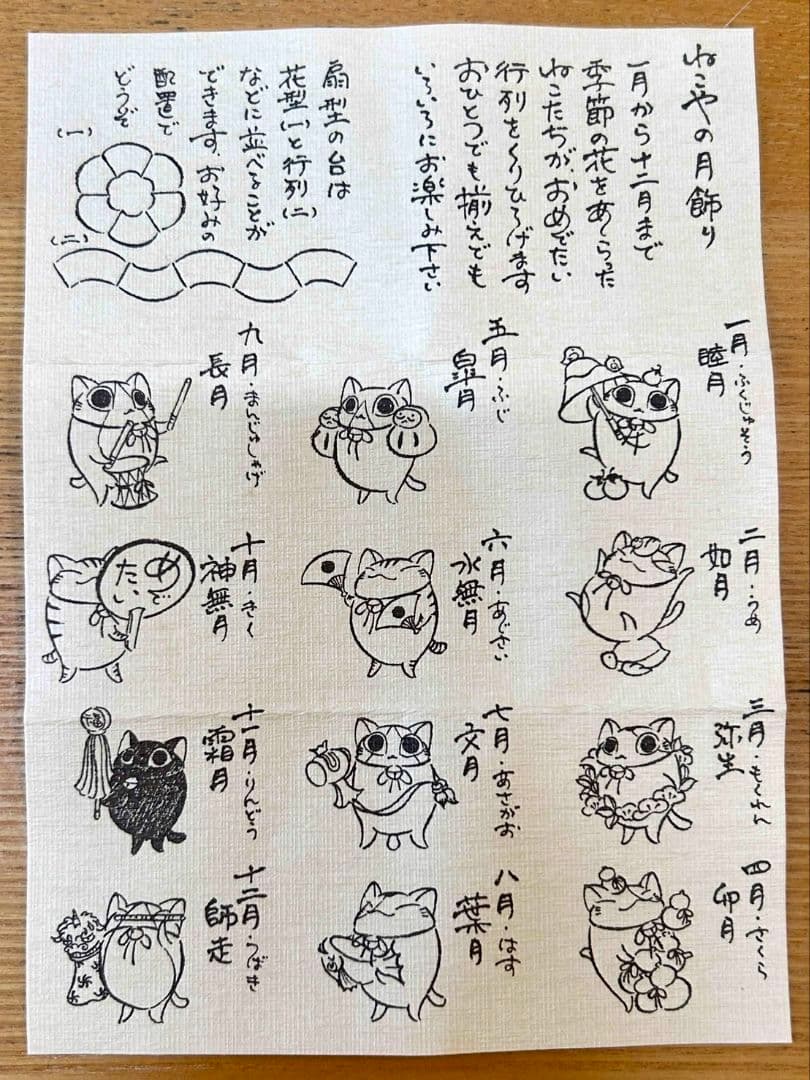 ねこやの月飾り
一月から十二月まで
季節の花をあしらった
ねこたちが、おめでたい
行列をくりひろげます
おひとつでも揃えでも
いろいろにお楽しみ下さい
扇型の台は
花型(一)と行列(二)
などに並べることが
できます、お好みの
配置で
どうぞ
(一)
(二)
一月・ふくじゅそう
睦月
二月・うめ
如月
三月・もくれん
弥生
四月・さくら
卯月
五月・ふじ
皐月
六月・あじさい
水無月
七月・あさがお
文月
八月・はす
葉月
九月・まんじゅしゃげ
長月
十月・きく
神無月
めで
たい
十一月・りんどう
霜月
福
十二月・つばき
師走